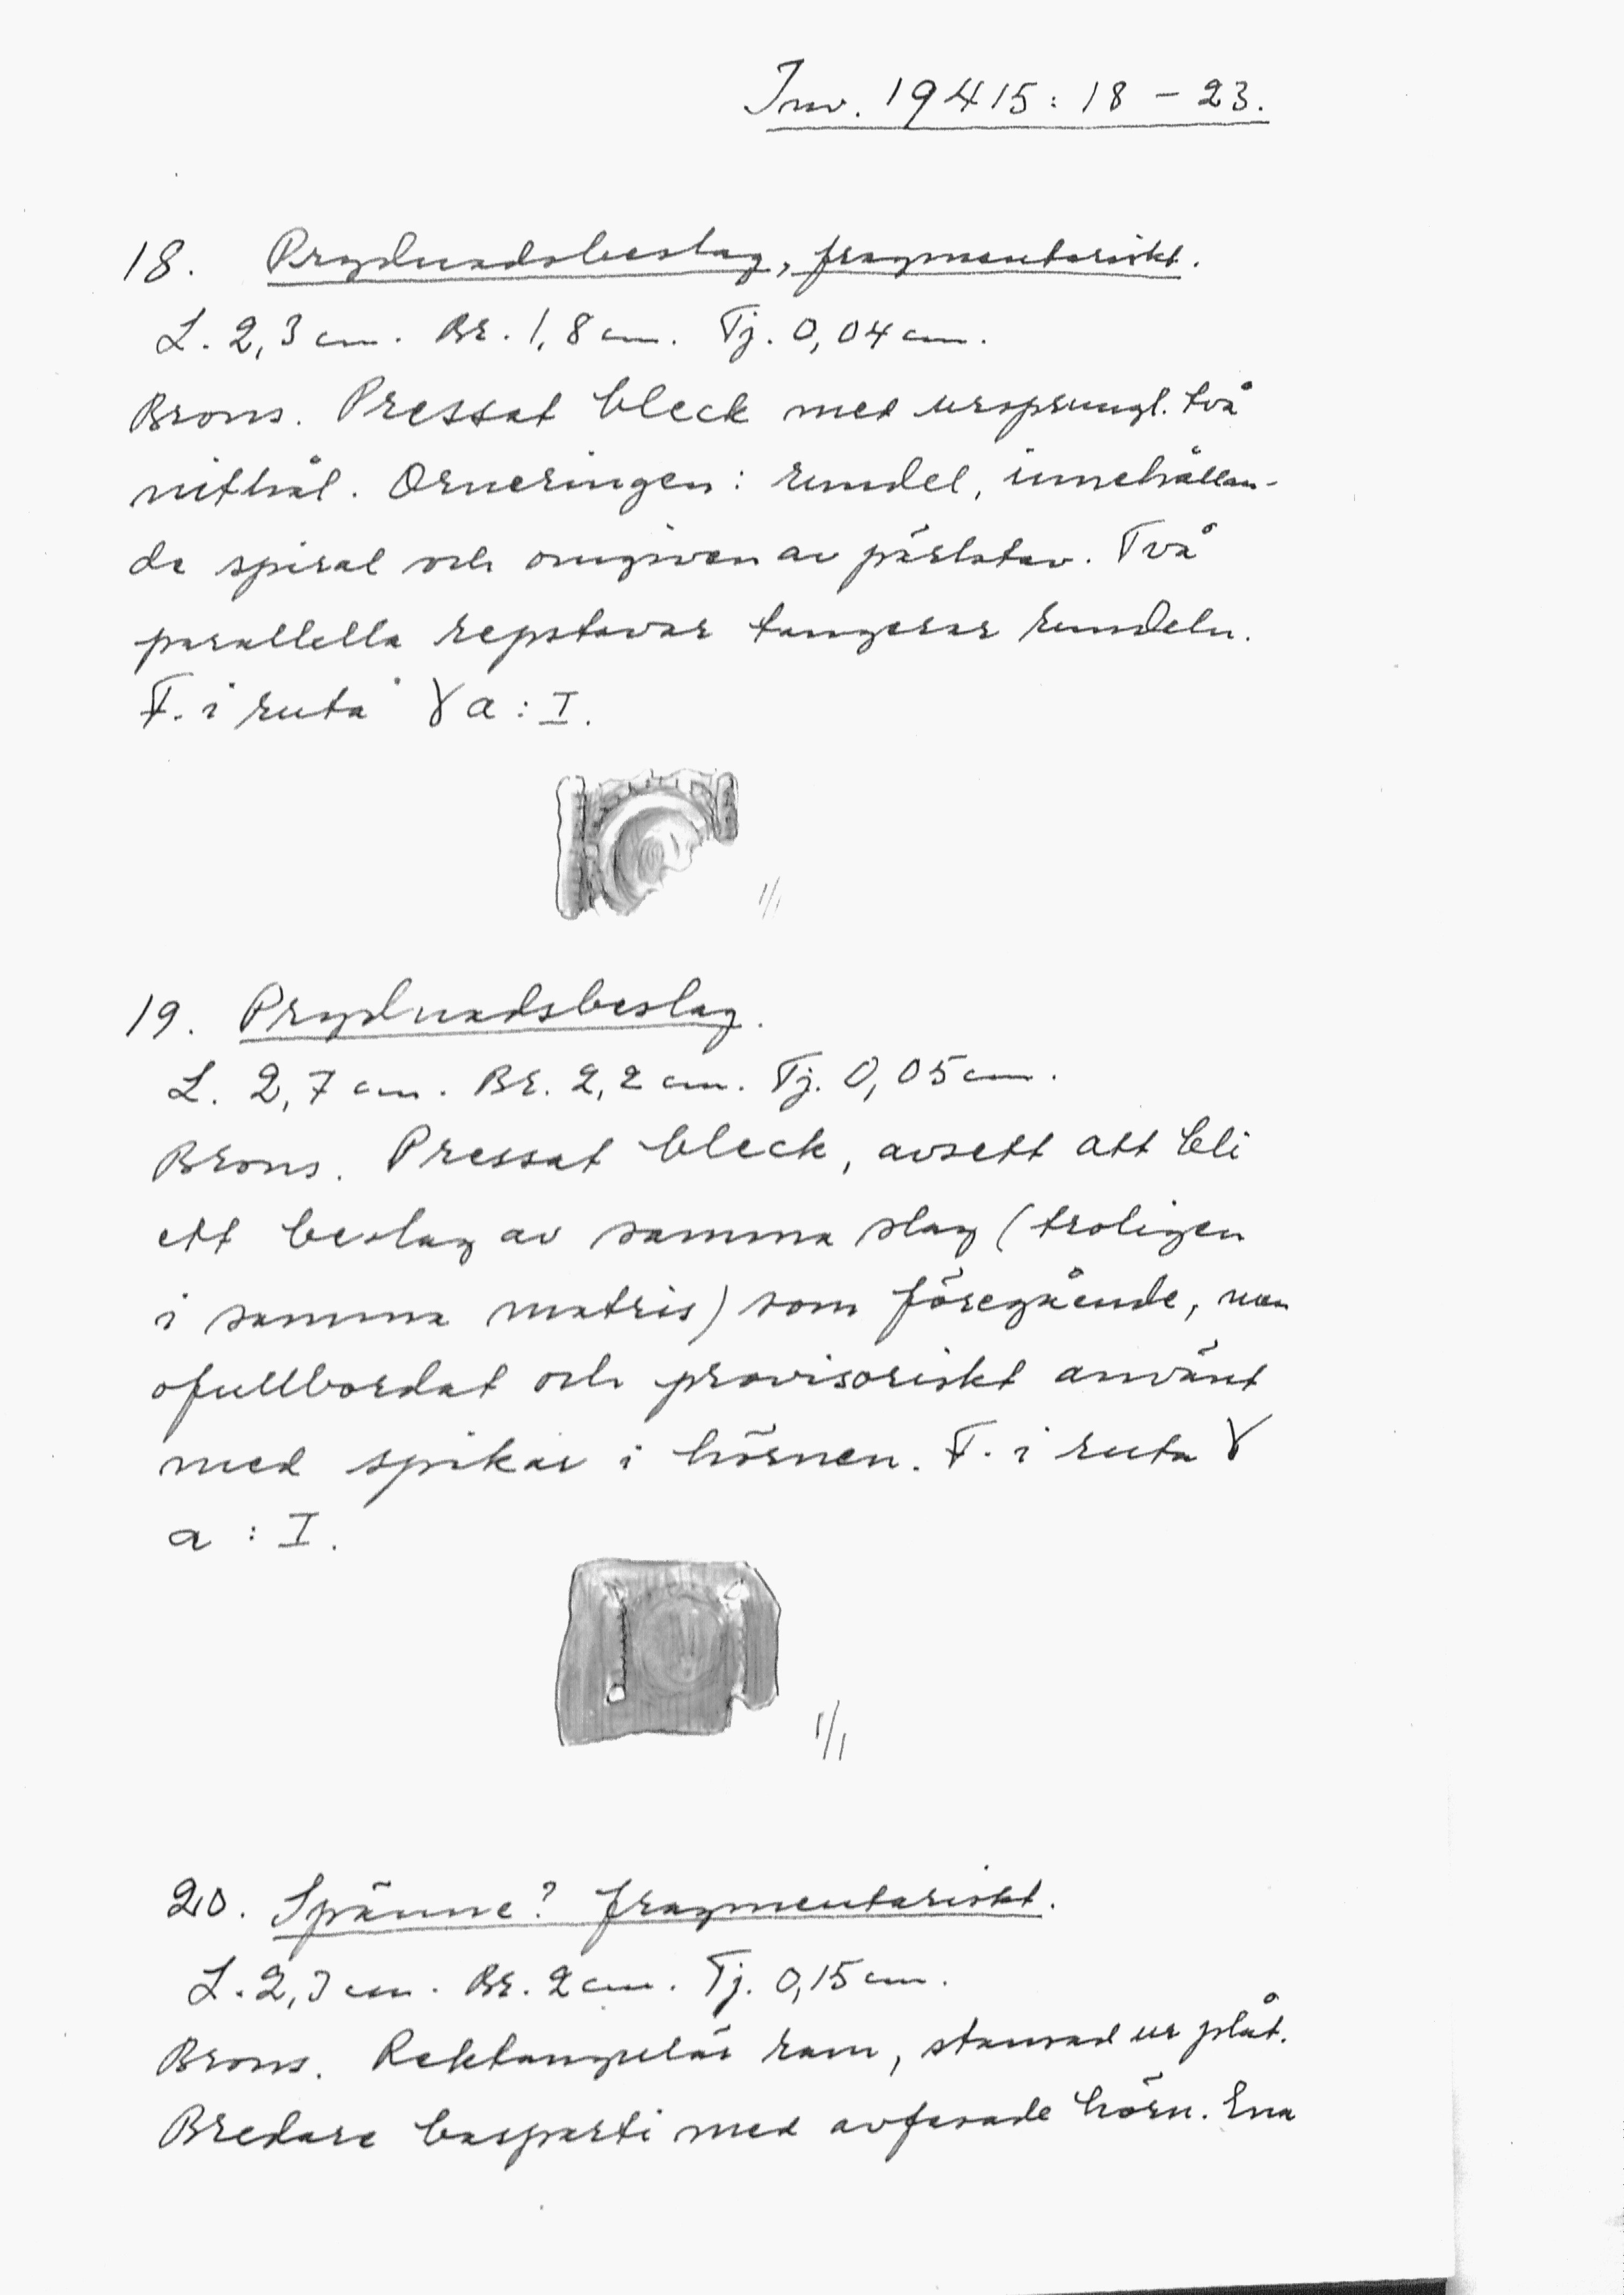 Inv. 19415:18-23.
18. Prydnadsbeslag, fragmentariskt.
L. 2,3 cm. Br. 1,8 cm. Tj. 0,04 cm.
Brons. Pressat bleck med ursprungl. två
nithål. Orneringen: rundel, innehållan-
de spiral och omgiven av pärlstav. Två
parallella repstavar tangerar rundeln.
F. i ruta γ a : I.
1/1
19. Prydnadsbeslag.
L. 2,7 cm. Br. 2,2 cm. Tj. 0,05 cm.
Brons. Pressat bleck, avsett att bli
ett beslag av samma slag (troligen
i samma matris) som föregående, men
ofullbordat och provisoriskt använt
med spikar i hörnen. F. i ruta γ
a : I.
1/1
20. Spänne? fragmentariskt.
L. 2,3 cm. Br. 2 cm. Tj. 0,15 cm.
Brons. Rektangulär ram, stansad ur plåt.
Bredare basparti med avfasade hörn. Ena